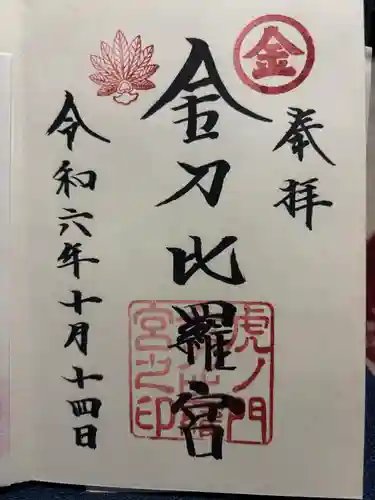 金
奉拝
金刀比羅宮
虎ノ門
金刀比羅
宮之印
令和六年十月十四日